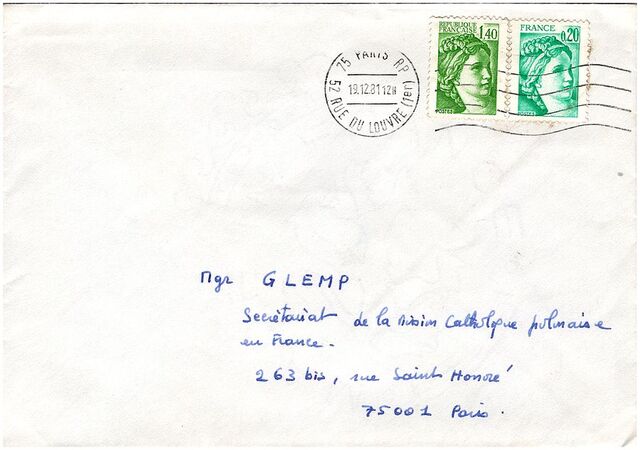 RÉPUBLIQUE
FRANÇAISE 1,40
POSTES
FRANCE
0,20
POSTES
75 PARIS R.P.
19.12.81 12H
52 RUE DU LOUVRE (1er)
Mgr GLEMP
Secrétariat de la Mission Catholique polonaise
en France.
263 bis, rue Saint Honoré
75001 Paris.